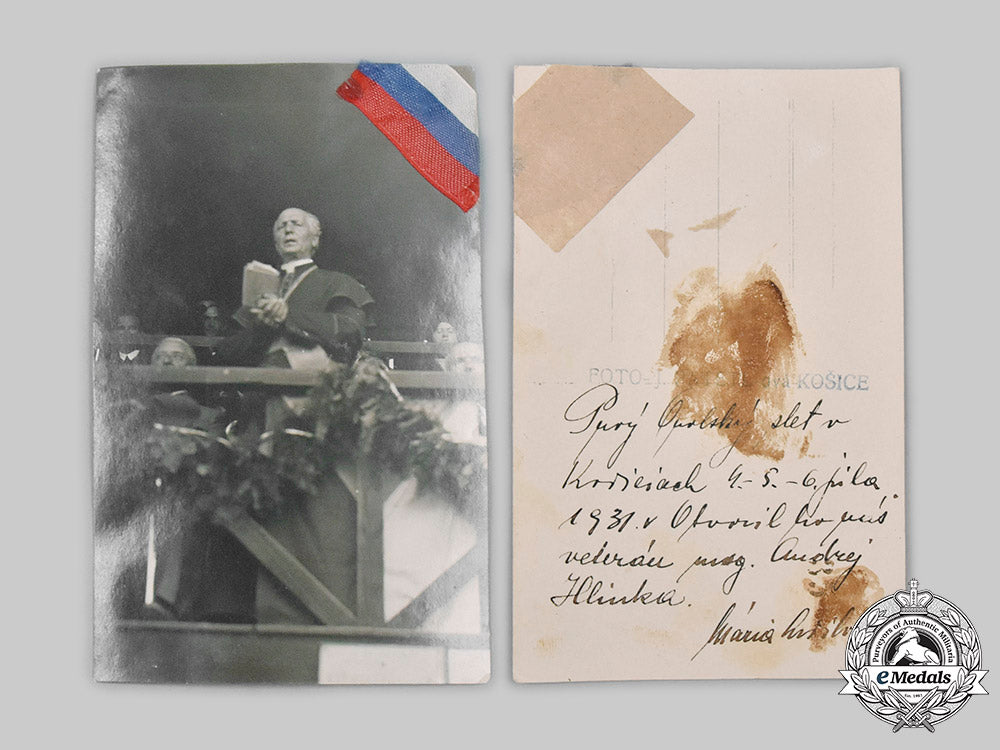 FOTO- KOŠICE
Prvý Orolský slet v
Košiciach 4.-5.-6. júla
1931. Otvoril ho náš
veterán Andrej
Hlinka.
Mária
Purveyors of Authentic Militaria
eMedals